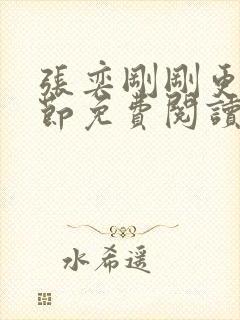 張奕剛剛更
節免費閱讀
水希遥